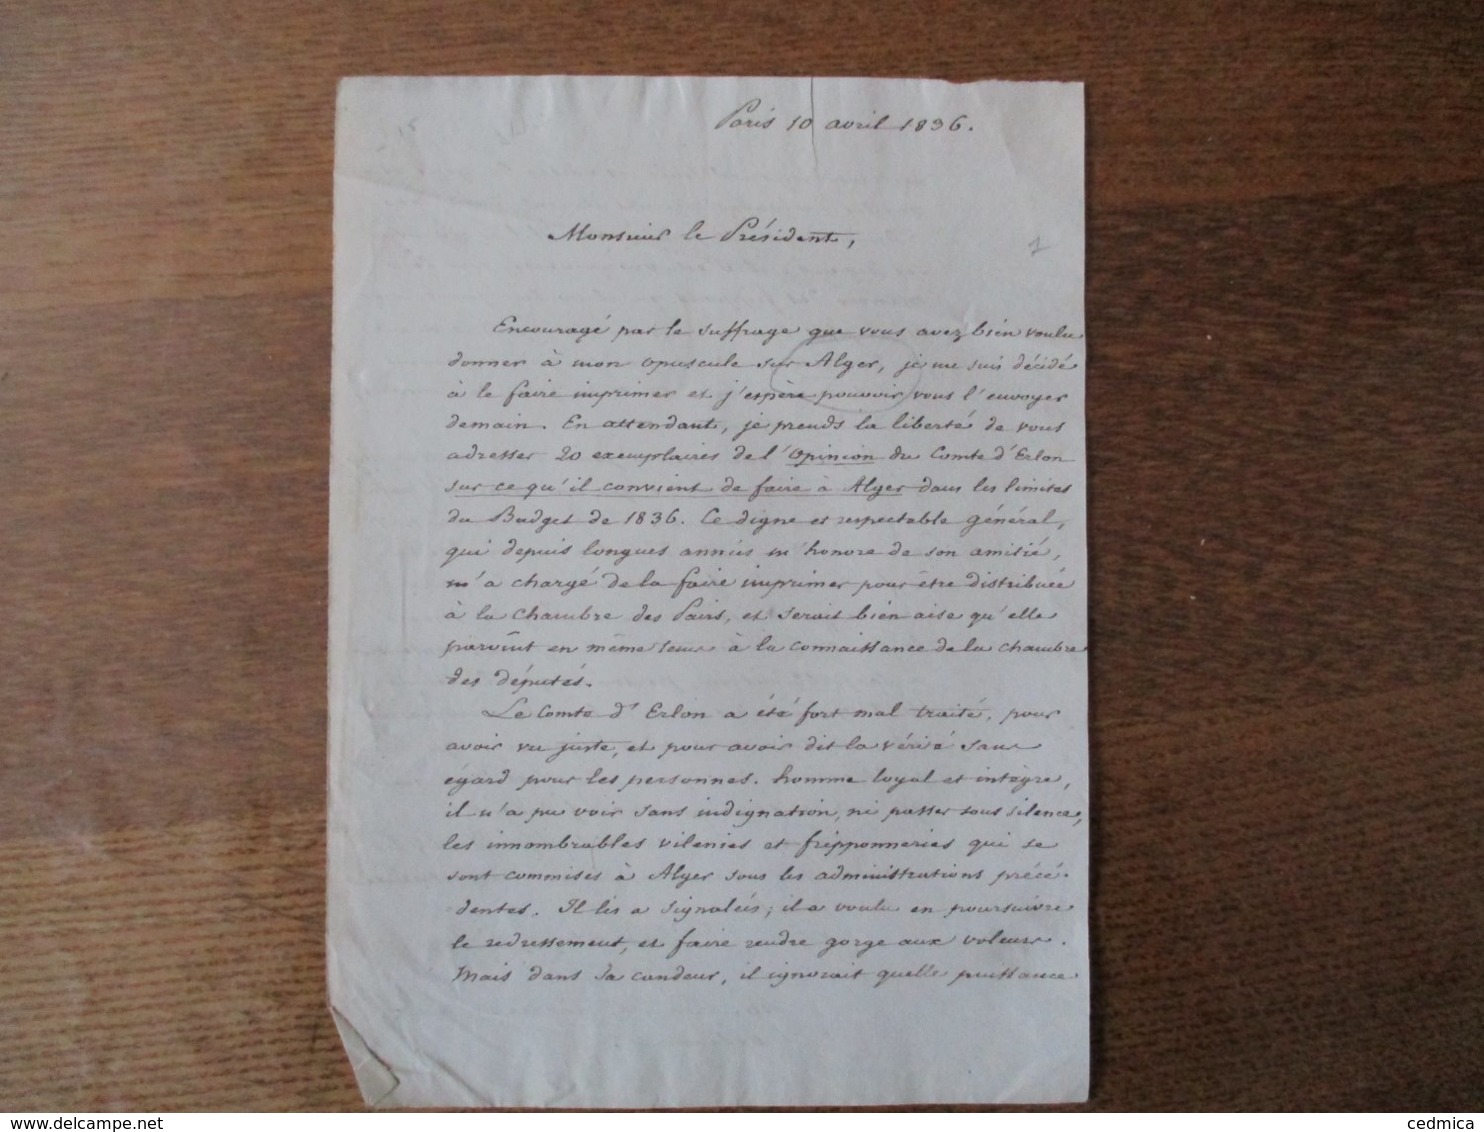 Paris 10 avril 1836.
Monsieur le Président,
Encouragé par le suffrage que vous avez bien voulu
donner à mon opuscule sur Alger, je me suis décidé
à le faire imprimer et j'espère pouvoir vous l'envoyer
demain. En attendant, je prends la liberté de vous
adresser 20 exemplaires de l'Opinion du Comte d'Erlon
sur ce qu'il convient de faire à Alger dans les limites
du Budget de 1836. Ce digne et respectable général,
qui depuis longues années m'honore de son amitié,
m'a chargé de la faire imprimer pour être distribuée
à la chambre des Pairs, et serait bien aise qu'elle
parvînt en même tems à la connaissance de la chambre
des députés.
Le Comte d'Erlon a été fort mal traité, pour
avoir vu juste, et pour avoir dit la vérité sans
égard pour les personnes. homme loyal et intègre,
il n'a pu voir sans indignation, ni passer sous silence,
les innombrables vilenies et fripponneries qui se
sont commises à Alger sous les administrations précé-
dentes. Il les a signalées; il a voulu en poursuivre
le redressement, et faire rendre gorge aux voleurs.
Mais dans sa candeur, il ignorait quelle puissance
1
15
cedmica
www.delcampe.net